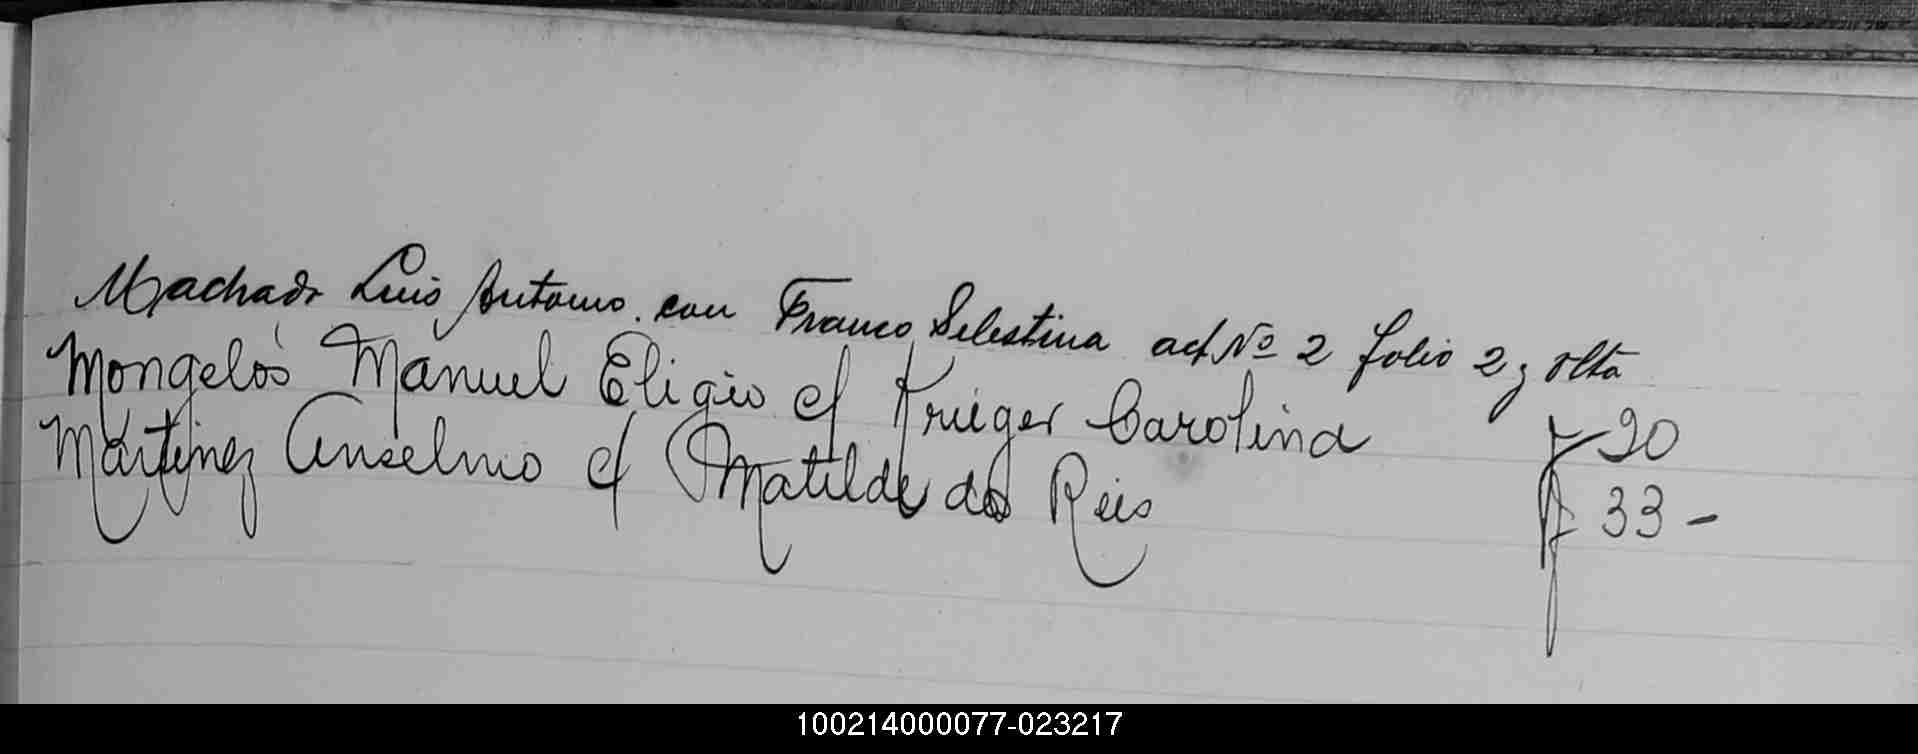 Machado Luis Antonio. con Franco Selestina act Nº 2 folio 2 y vlta
Mongelós Manuel Eligio c/ Krieger Carolina f 20
Martinez Anselmo c/ Matilde dos Reis f 33 -
100214000077-023217